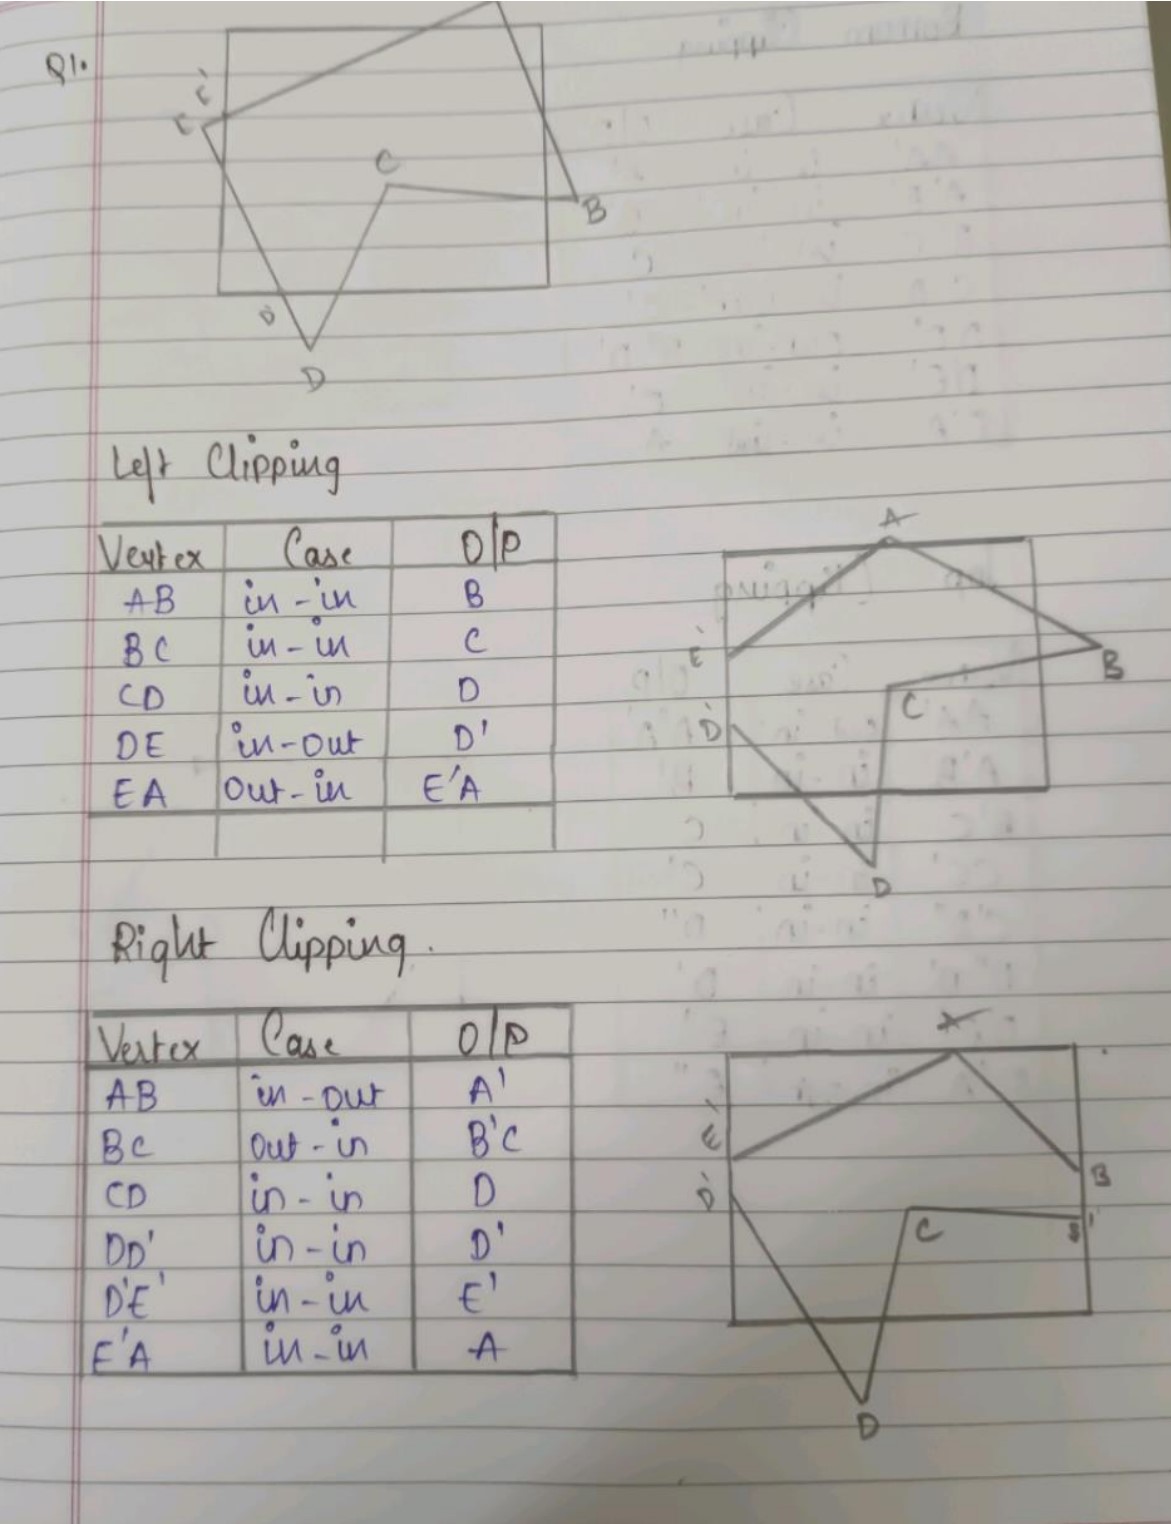 Q1.
E'
E
C
B
D'
D
Left Clipping
Vertex Case O/P
AB in-in B
BC in-in C
CD in-in D
DE in-out D'
EA Out-in E'A
A
E'
B
C
D'
D
Right Clipping.
Vertex Case O/P
AB in-out A'
BC Out-in B'C
CD in-in D
DD' in-in D'
D'E' in-in E'
E'A in-in A
A
E'
B
D'
C
B'
D